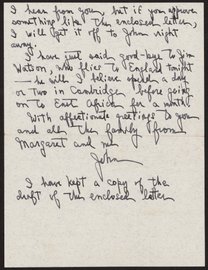 I hear from you, but if you approve
something like the enclosed letter,
I will get it off to John right
away.
I have just said good-bye to Jim
Watson, who flies to England tonight
— he will I believe spend a day
or two in Cambridge before going
on to East Africa for a month
With affectionate greetings to you
and all the family from
Margaret and me
John
I have kept a copy of the
draft of the enclosed letter